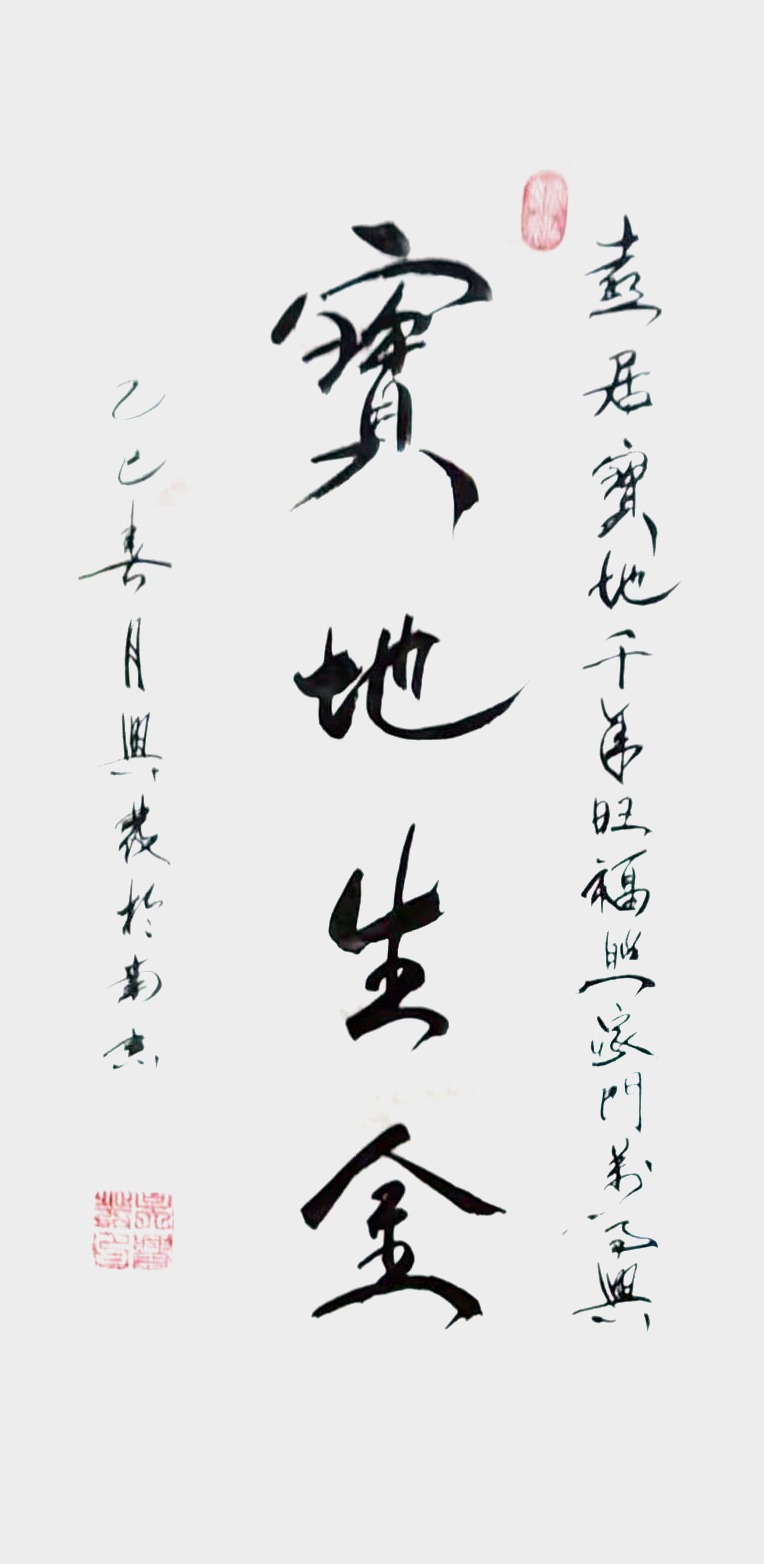 喜居寶地千年旺福照家門萬事興
寶地生金
乙巳春月興發於南